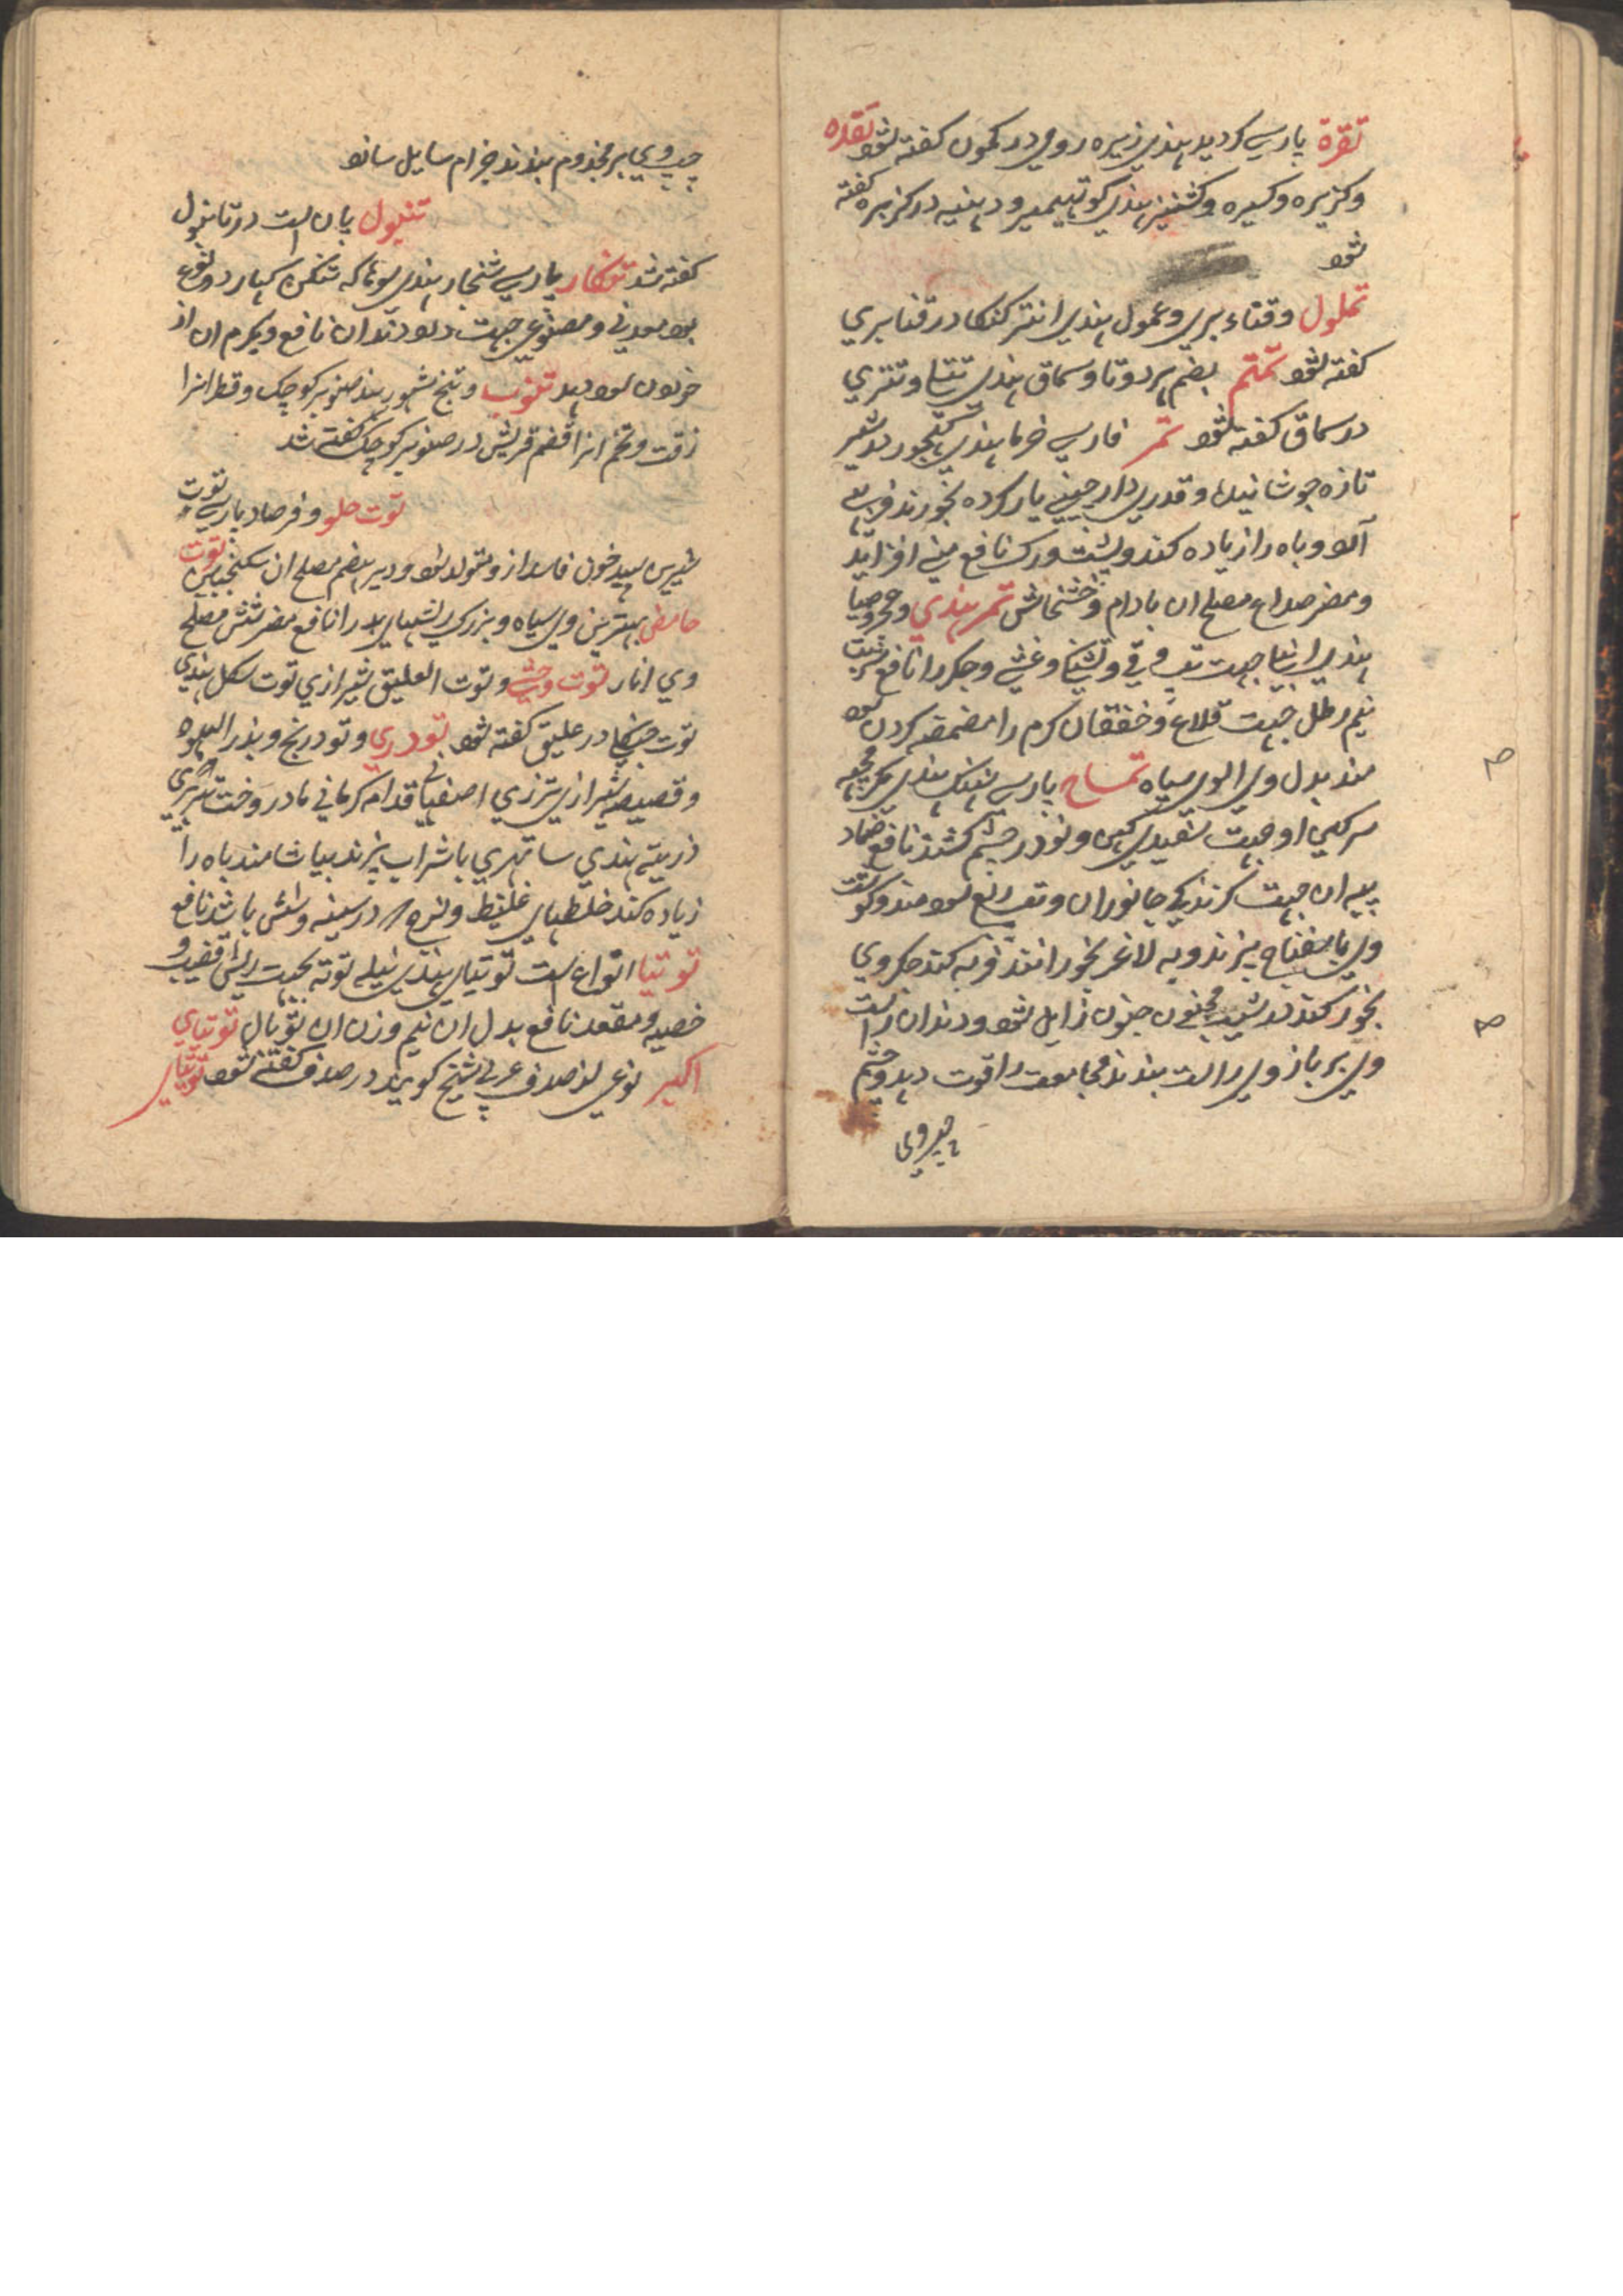 تقرة پارسی کردید هندی زیره رومی در کمون کفته شود تقده
وکزبره وکسبره وکشنیز هندی کوتهیمیر ودهنیه در کزبره کفته
شود
تملول وقثاء بری وعملول هندی انتر کنکا در قثا بری
کفته شود تمتم بضم هر دو تا وسماق هندی تتنا وتتری
در سماق کفته شود تمر فارسی خرما هندی کهجور در شیر
تازه جوشانیده وقدری دارچینی یار کرده بخورند فربهی
آرد وباه را زیاده کند وپشت ورک نافع منی افزاید
ومضر صداع مصلح ان بادام وخشخاش تمر هندی وحمر وصبا
هندی انبیا جهت تپ وقی وتشنکی وغشی وجکر را نافع شربت
نیم رطل جهت قلاع وخفقان کرم را مضمضه کردن سود
مند بدل وی الوی سیاه تمساح پارسی نهنک هندی مکرمچه
سرکین او جهت سفیدی کهن ونو در چشم کشند نافع ضماد
پیه ان جهت کزندکی جانوران وتپ ربع سودمند وکوشت
وی باسفناج پزند وبه لاغر بخورانند فربه کند جکر وی
بخور کنند در شب مجنون جنون زایل شود ودندان راست
وی بر بازوی راست بندند مجامعت را قوت دهد وچشم
چپ وی
چپ وی بر مجذوم بندند جذام سایل سازد
تنبول پان است در تانبول
کفته شد تنکار پارسی شنجار هندی سوهاکه تنکن کهار دو نوع
بود معدنی ومصنوعی جهت درد دندان نافع وکرم ان از
خوردن سود دهد تنوب وتنخ مشهور بصنوبر کوچک وقطرانرا
زفت وتخم انرا قضم قریش در صنوبر کوچک کفته شد
توت حلو وفرصاد پارسی توت
شیرین سپید خون فاسد از و متولد شود ودیر هضم مصلح ان سکنجبین توت
حامض بهترین وی سیاه وبزرک ریشهای بد را نافع مضر شش مصلح
وی انار توت وحشی وتوت العلیق شیرازی توت سکل هندی
توت جنکلی در علیق کفته شود تودری وتودرنج وبذر الهوه
وقصیصه شیرازی تزری اصفهانی قدام کرمانی مادر دخت تبریزی
ذریته هندی ساتهری باشراب پزند بیاشامند باه را
زیاده کند خلطهای غلیظ ولزج در سینه وشش باشد نافع
توتیا انواع است توتیای هندی نیله توته بجهت ریش قضیب و
خصیه ومقعد نافع بدل ان نیم وزن ان توبال توتیای
اکبر نوعی از صدف عربی شنج کویند در صدف کفته شود توتیای